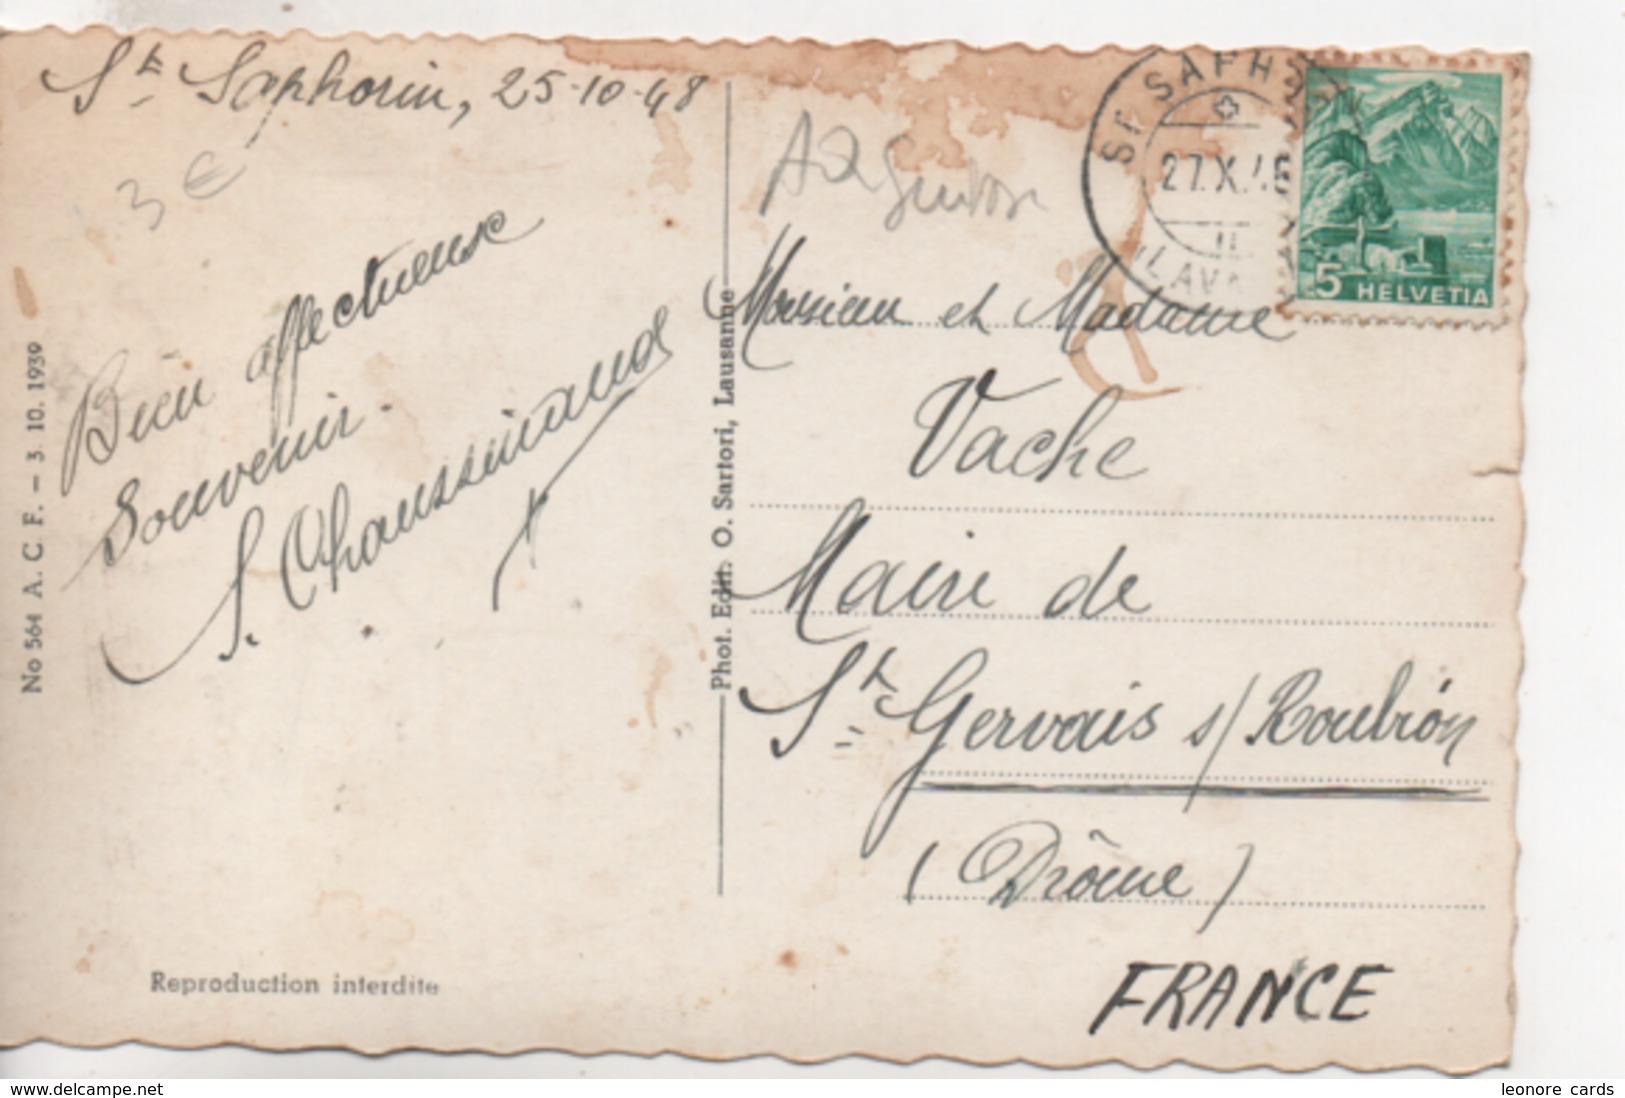 St Saphorin, 25-10-48
3 €
Bien affectueux
souvenir.
S. Chaussinand
No 564 A. C. F. — 3. 10. 1939
Reproduction interdite
Phot. Edit. O. Sartori, Lausanne
ST SAPHO
27.X.48
(LAVA
5 HELVETIA
Monsieur et Madame
Vache
Maire de
St Gervais s/ Roubion
(Drôme)
FRANCE
www.delcampe.net
leonore cards